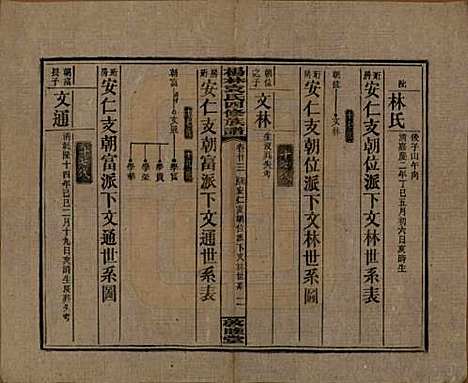 妣
林氏
清嘉慶二年丁巳五月初六日亥時生
後子山午向
珩房安仁支朝位派下文林世系表
珩房安仁支朝位派下文林世系圖
朝位
文林
朝位之子
文林
生歿葬失考
楊林 氏四修族譜
卷十三
安仁支朝位文林世系
敦睦堂
珩房安仁支朝富派下文通世系表
朝富
文通
學富
學貴
學榮
學華
珩房安仁支朝富派下文通世系圖
朝富長子
文通
清乾隆十四年己巳二月十九日亥時生歿葬失考